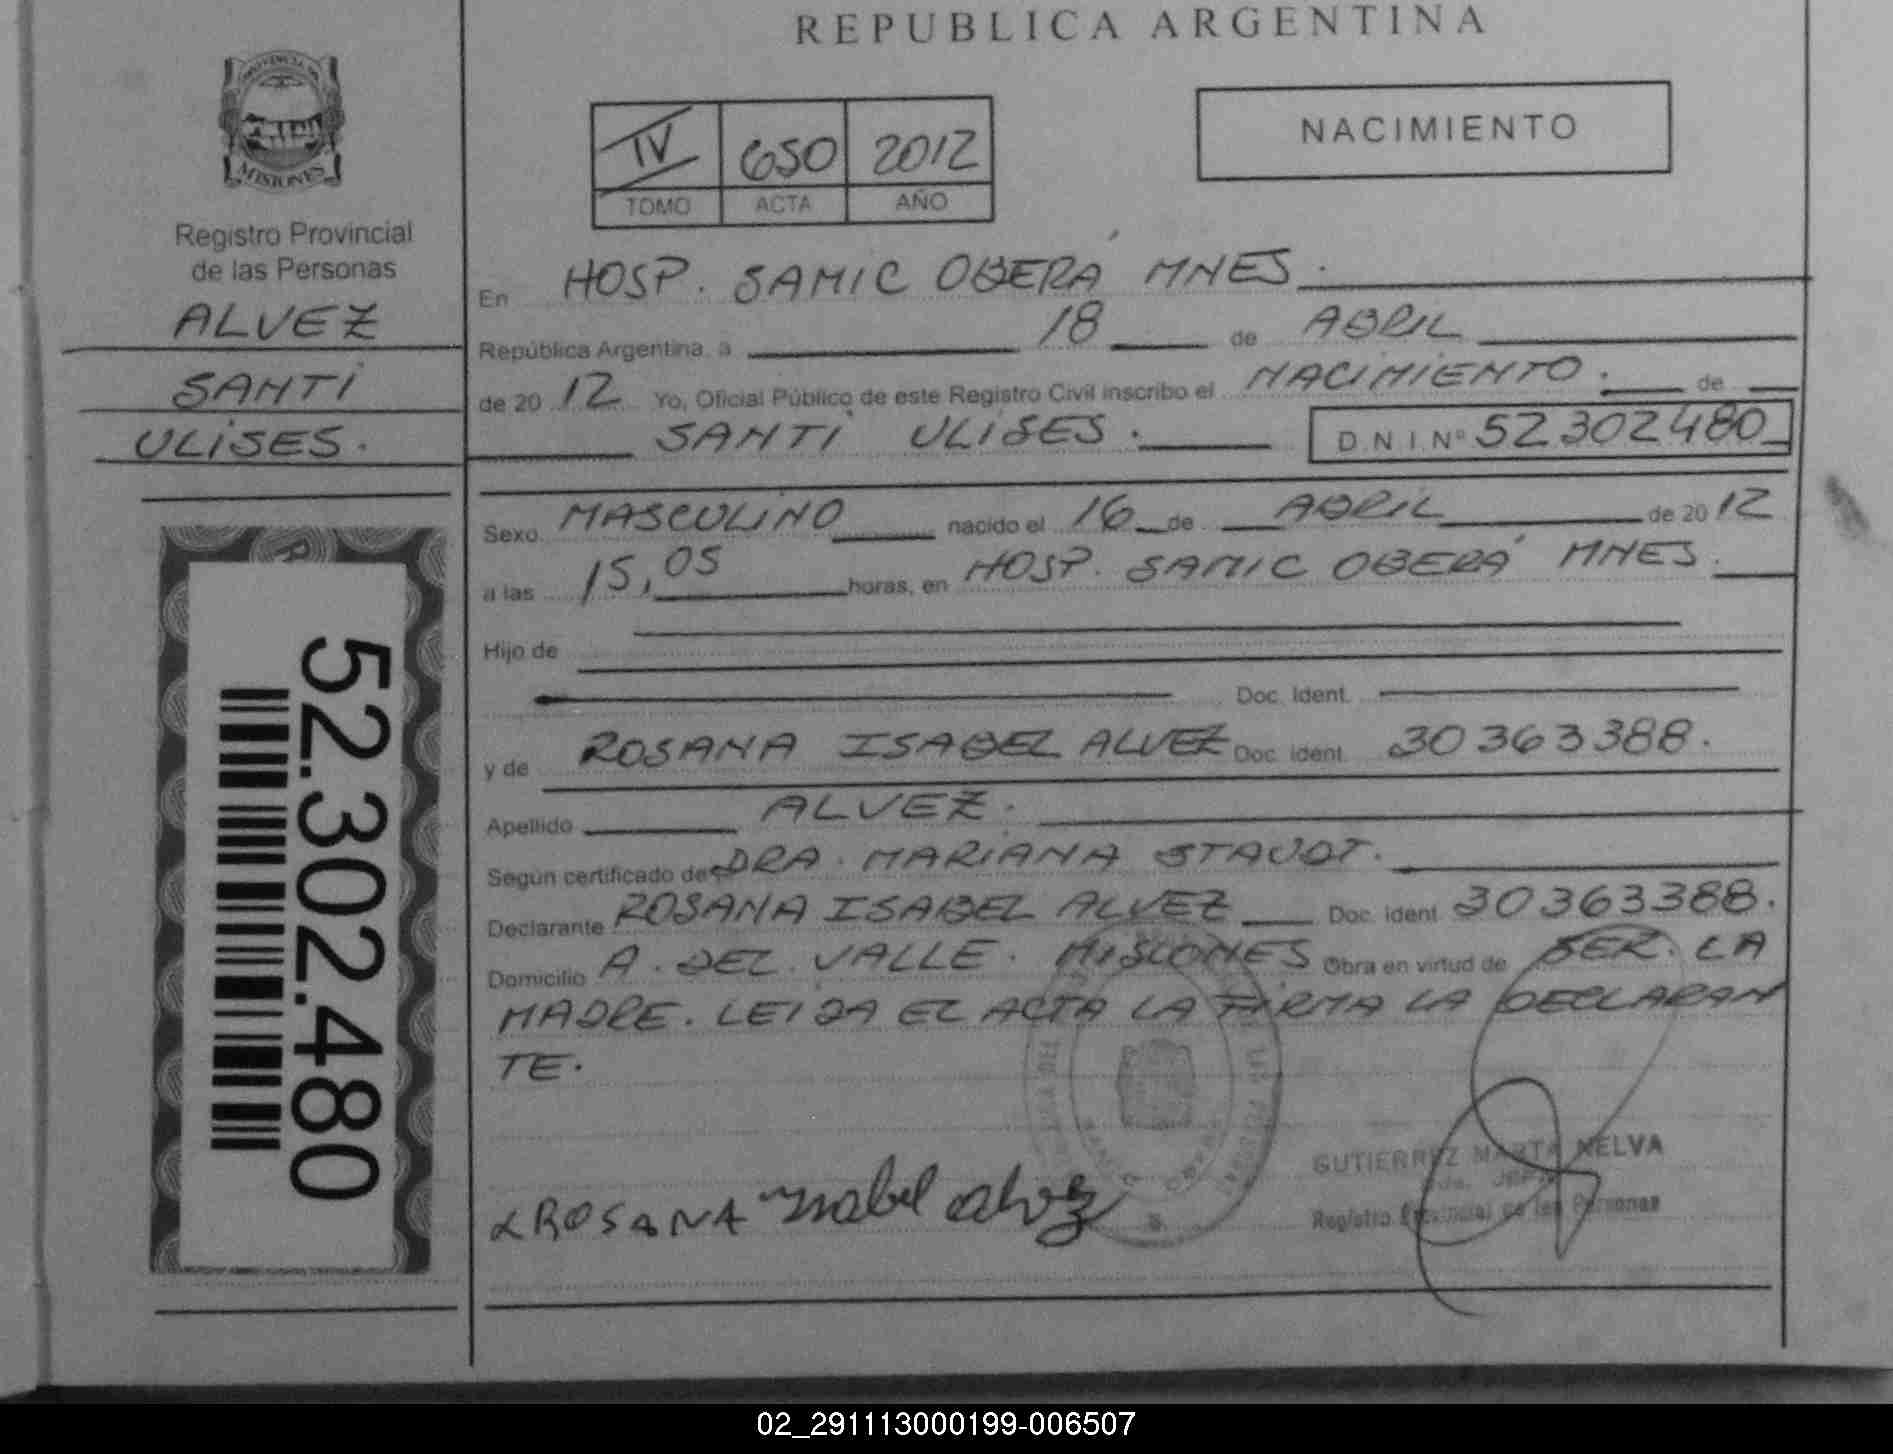 REPUBLICA ARGENTINA
PROVINCIA DE
MISIONES
Registro Provincial
de las Personas
ALVEZ
SANTI
ULISES.
52.302.480
IV 650 2012
TOMO ACTA AÑO
NACIMIENTO
En HOSP. SAMIC OBERÁ MNES.
República Argentina, a 18 de ABRIL
de 20 12 Yo, Oficial Público de este Registro Civil inscribo el NACIMIENTO. de
SANTI ULISES. D.N.I.Nº 52302480
Sexo MASCULINO nacido el 16 de ABRIL de 20 12
a las 15,05 horas, en HOSP. SAMIC OBERÁ MNES.
Hijo de
Doc. Ident.
y de ROSANA ISABEL ALVEZ Doc. Ident. 30363388.
Apellido ALVEZ.
Según certificado de DRA. MARIANA STAUDT.
Declarante ROSANA ISABEL ALVEZ Doc. Ident. 30363388.
Domicilio A. DEL VALLE. MISIONES Obra en virtud de SER. LA
MADRE. LEIDA EL ACTA LA FIRMA LA DECLARAN
TE.
ROSANA Isabel alvez
GUTIERREZ MARTA NELVA
Registro Provincial de las Personas
02_291113000199-006507